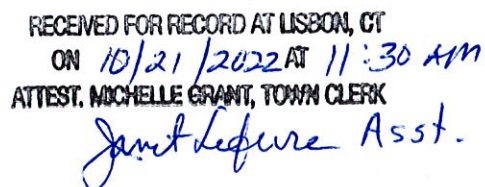 RECEIVED FOR RECORD AT LISBON, CT
ON 10/21/2022 AT 11:30 AM
ATTEST. MICHELLE GRANT, TOWN CLERK
Janet Lefevre Asst.